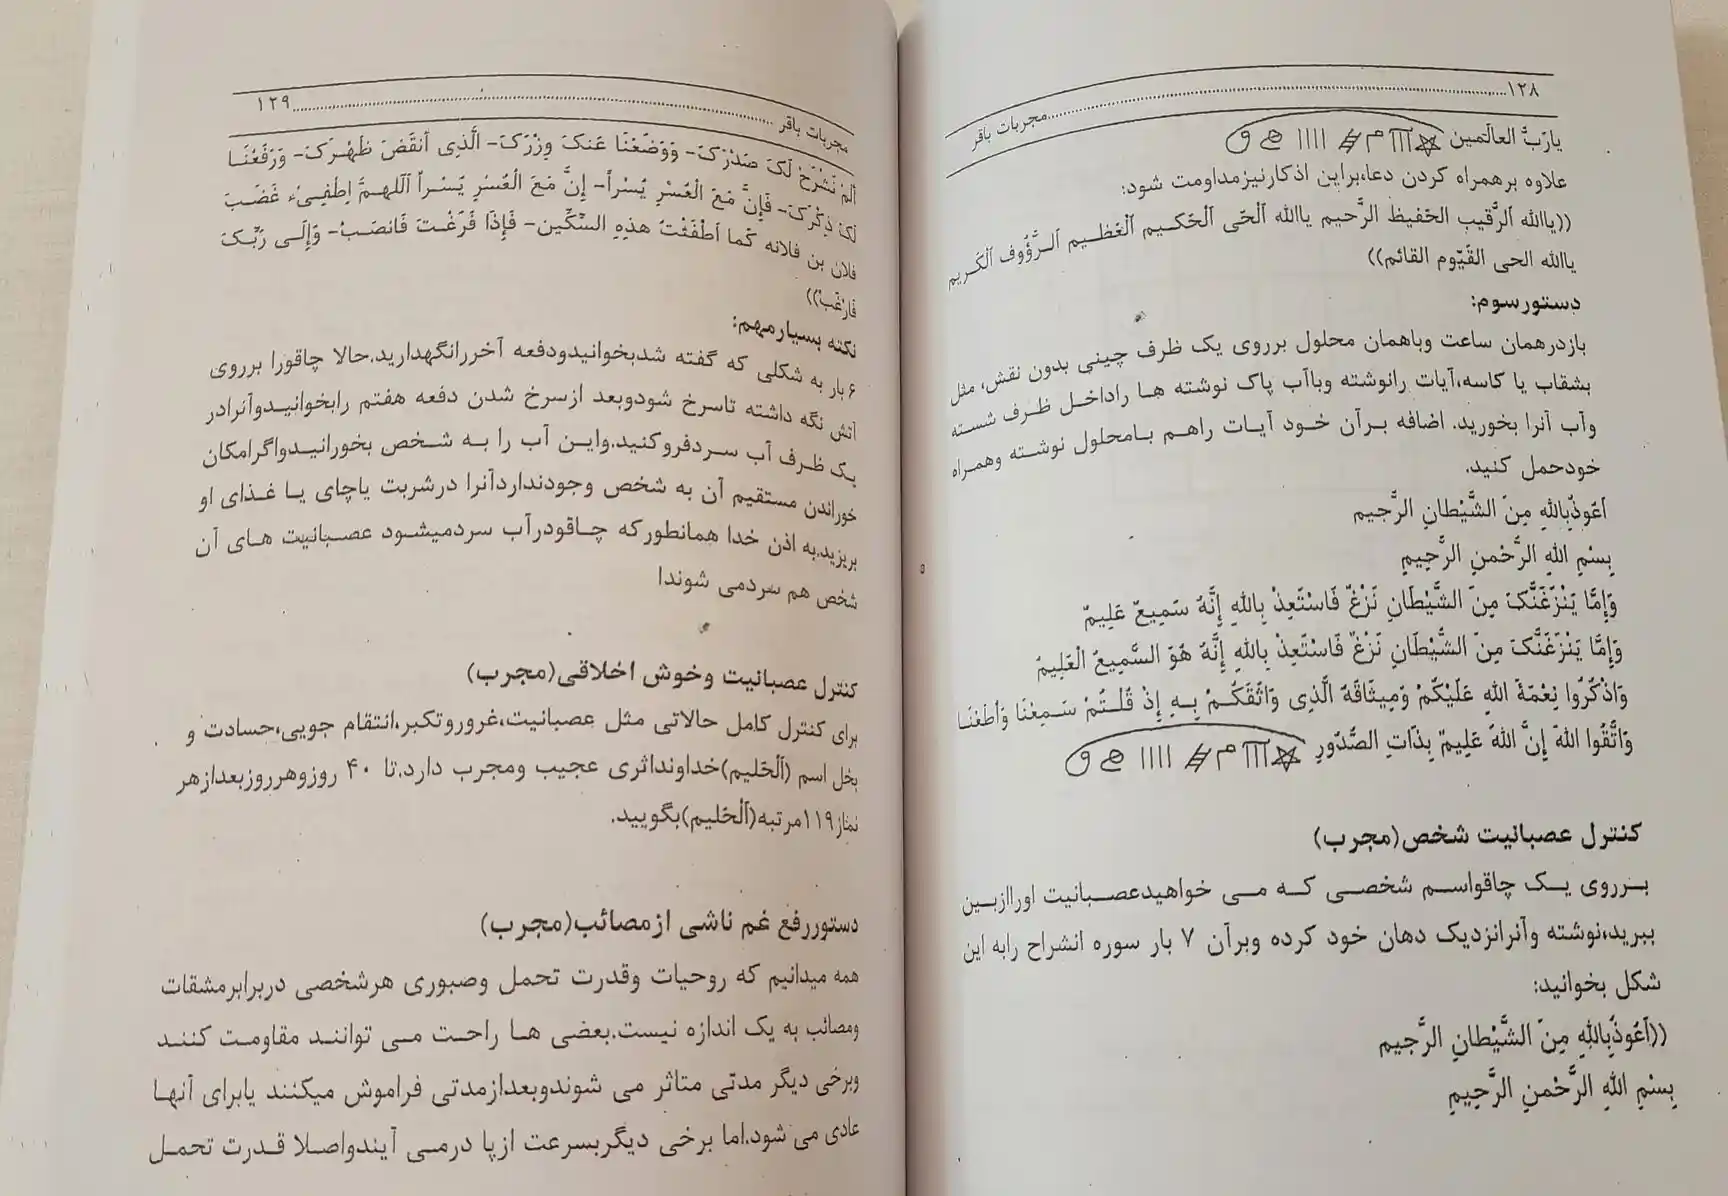 ۱۲۸ مجربات باقر
یارَبَّ العالَمین
علاوه برهمراه کردن دعا،براین اذکارنیزمداومت شود:
((یاالله اَلرَّقیب الحَفیظ الرَّحیم یاالله اَلحَّی اَلحَّکـیم اَلعَّظـیم اَلـرَّؤُوف اَلکَریم
یاالله الحی القَیّوم القائم))
دستورسوم:
بازدرهمان ساعت وباهمان محلول برروی یک ظرف چینی بدون نقش، مثل
بشقاب یا کاسه،آیات رانوشته وباآب پاک نوشته هـا راداخـل ظـرف شسـته
وآب آنرا بخورید. اضافه بـرآن خـود آیـات راهـم بـامحلول نوشـته وهمـراه
خودحمل کنید.
اَعُوذُبِاللهِ مِنَ الشَّیْطانِ الرَّجیم
بِسْمِ اللهِ الرَّحْمنِ الرَّحِیمِ
وَإِمَّا یَنْزَغَنَّکَ مِنَ الشَّیْطَانِ نَزْغٌ فَاسْتَعِذْ بِاللهِ إِنَّهُ سَمِیعٌ عَلِیمٌ
وَإِمَّا یَنْزَغَنَّکَ مِنَ الشَّیْطَانِ نَزْغٌ فَاسْتَعِذْ بِاللهِ إِنَّهُ هُوَ السَّمِیعُ الْعَلِیمُ
وَاذْکُرُوا نِعْمَةَ اللهِ عَلَیْکُمْ وَمِیثَاقَهُ الَّذِی وَاثَقَکُـمْ بِـهِ إِذْ قُلْـتُمْ سَـمِعْنَا وَأَطَعْنَا
وَاتَّقُوا اللهَ إِنَّ اللهَ عَلِیمٌ بِذَاتِ الصُّدُورِ
کنترل عصبانیت شخص(مجرب)
بـرروی یـک چاقواسـم شخصـی کـه مـی خواهیدعصـبانیت اوراازبـین
ببرید،نوشته وآنرانزدیک دهان خود کرده وبرآن ۷ بار سوره انشراح رابه این
شکل بخوانید:
((اَعُوذُبِاللهِ مِنَ الشَّیْطانِ الرَّجیم
بِسْمِ اللهِ الرَّحْمنِ الرَّحِیمِ
مجربات باقر ۱۲۹
أَلَمْ نَشْرَحْ لَکَ صَدْرَکَ- وَوَضَعْنَا عَنکَ وِزْرَکَ- الَّذِی أَنقَضَ ظَهْـرَکَ- وَرَفَعْنَـا
لَکَ ذِکْرَکَ- فَإِنَّ مَعَ الْعُسْرِ یُسْراً- إِنَّ مَعَ الْعُسْرِ یُسْراً اَللهـمَّ اِطفِـیء غَضَـبَ
فلان بن فلانه کَما اَطْفَئْتُ هذهِ السکِّین- فَإِذَا فَرَغْـتَ فَانصَـبْ- وَإِلَـى رَبِّـکَ
فَارْغَبْ))
نکته بسیارمهم:
۶ بار به شکلی که گفته شدبخوانیدودفعه آخررانگهدارید.حالا چاقورا برروی
آتش نگه داشته تاسرخ شودوبعد ازسرخ شدن دفعه هفتم رابخوانیـدوآنرادر
یـک ظـرف آب سـردفروکنید.وایـن آب را بـه شـخص بخورانیـدواگرامکان
خوراندن مستقیم آن به شخص وجودنداردآنرا درشربت یاچای یـا غـذای او
بریزید.به اذن خدا همانطورکه چـاقودرآب سردمیشـود عصـبانیت هـای آن
شخص هم سردمی شوند!
کنترل عصبانیت وخوش اخلاقی(مجرب)
برای کنترل کامل حالاتی مثل عصبانیت،غروروتکبر،انتقام جویی،حسادت و
بخل اسم (اَلْحَلیم)خداونداثری عجیب ومجرب دارد.تا ۴۰ روزوهرروزبعدازهر
نماز۱۱۹مرتبه(اَلْحَلیم)بگویید.
دستوررفع غم ناشی ازمصائب(مجرب)
همه میدانیم که روحیات وقدرت تحمل وصبوری هرشخصی دربرابرمشقات
ومصائب به یک اندازه نیست.بعضی هـا راحـت مـی تواننـد مقاومـت کننـد
وبرخی دیگر مدتی متاثر می شوندوبعدازمدتی فراموش میکنند یابرای آنهـا
عادی می شود.اما برخی دیگربسرعت ازپا درمـی آیندواصـلا قـدرت تحمـل